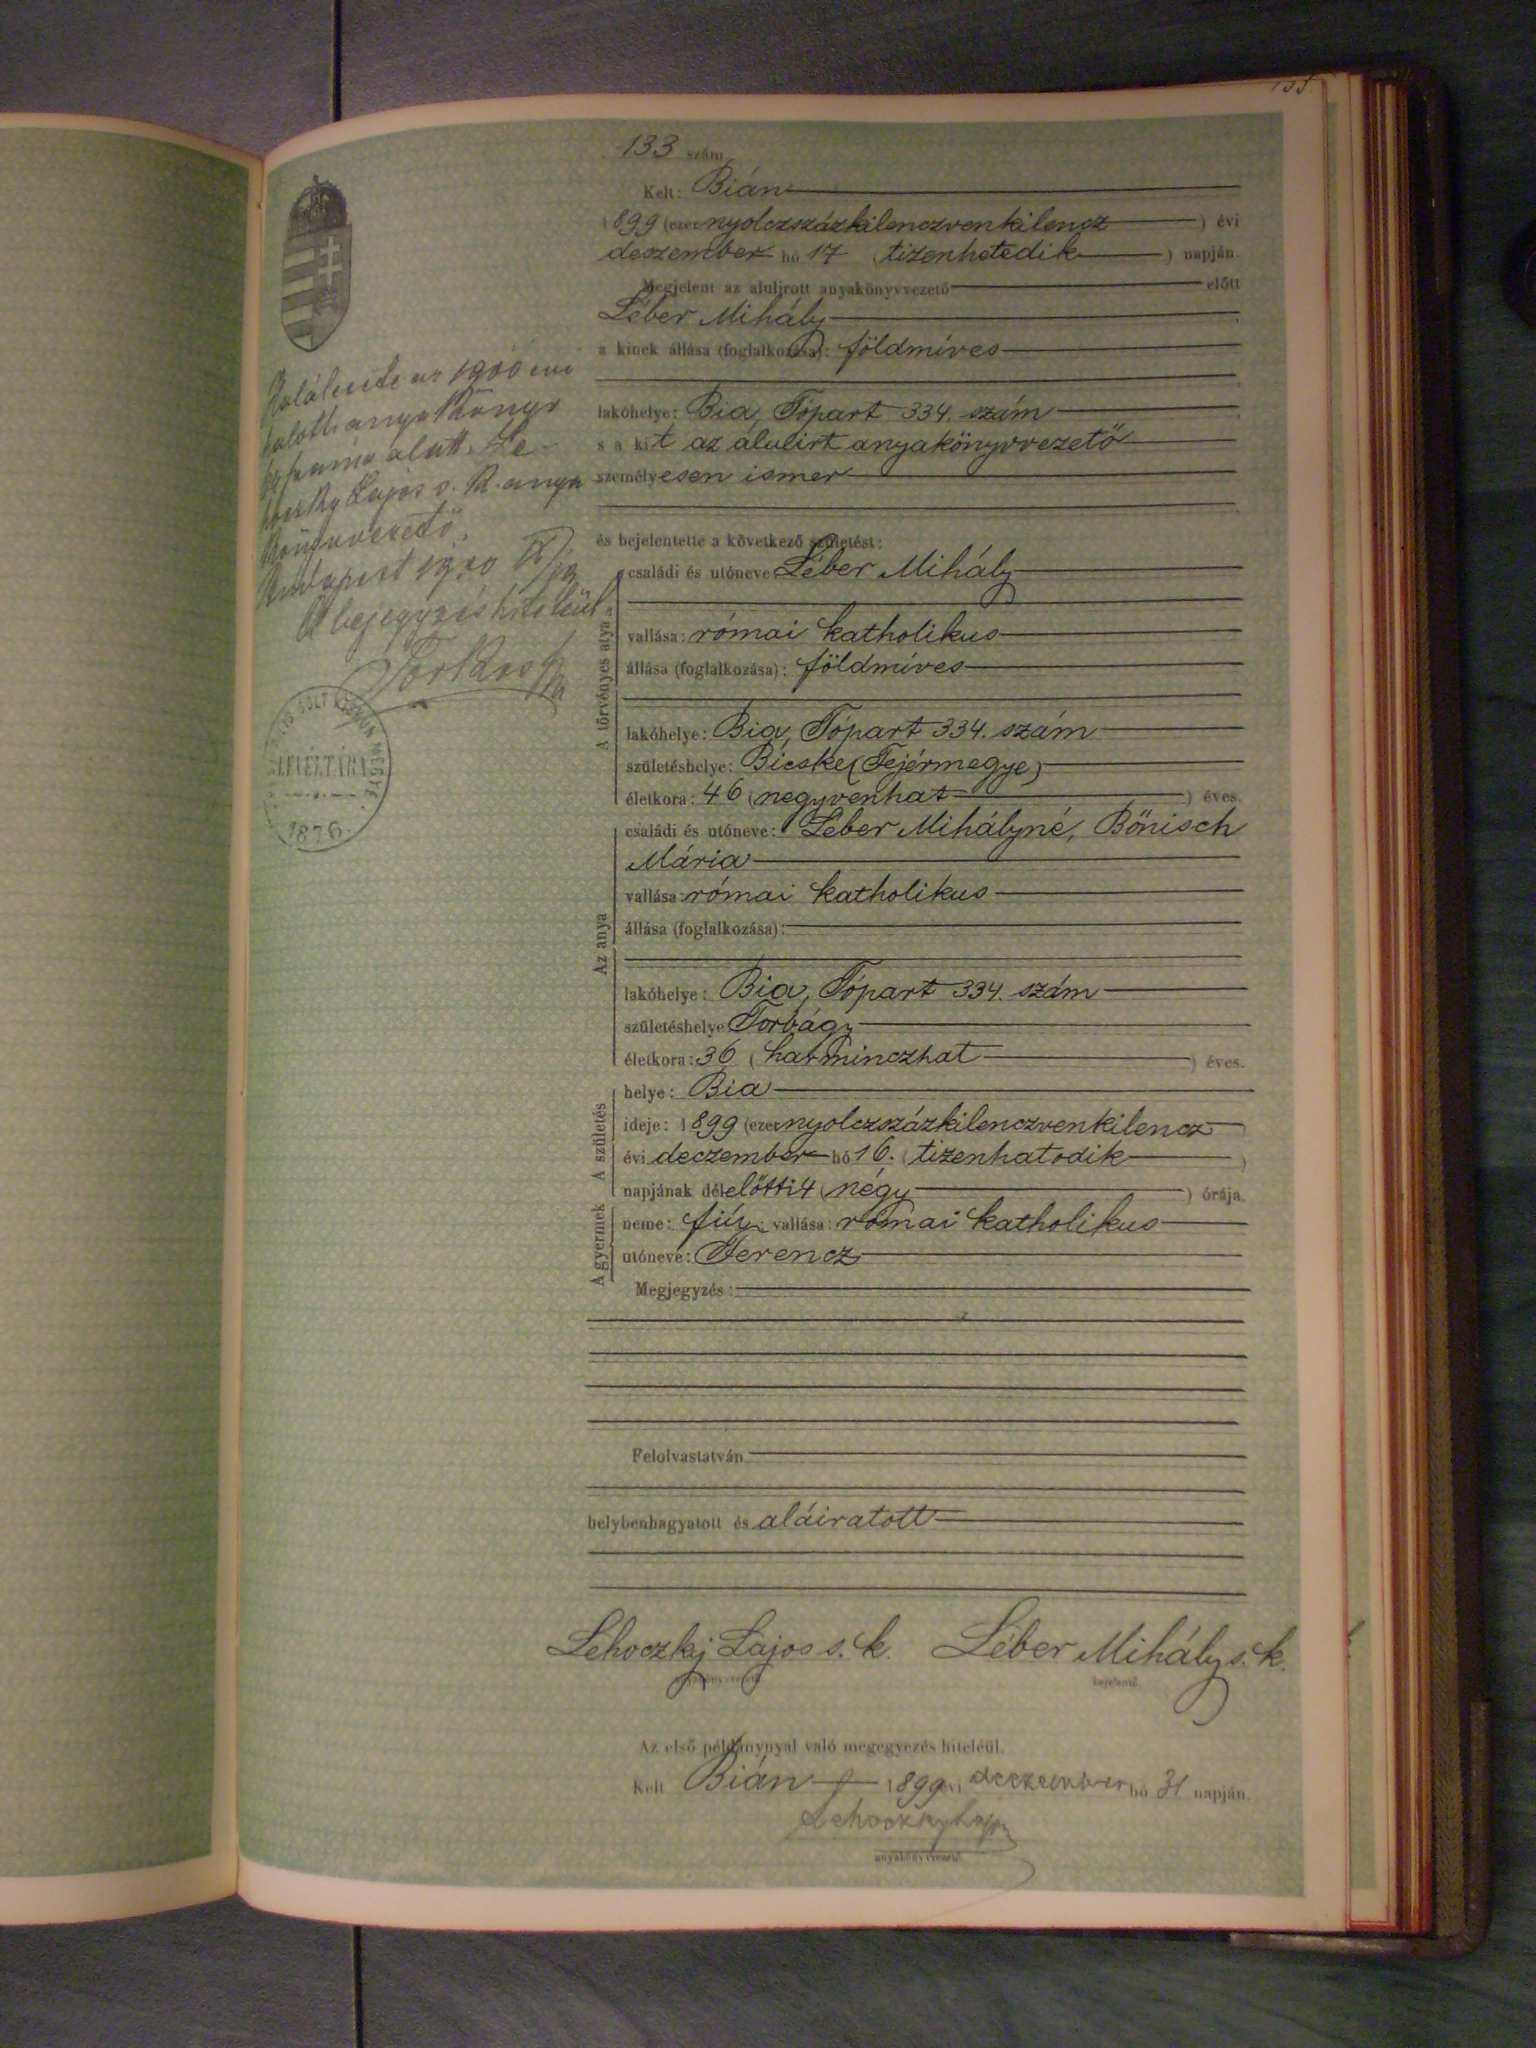 133 szám
Kelt: Bián
1899 (ezernyolczszázkilenczvenkilencz) évi
deczember hó 17 (tizenhetedik) napján.
Megjelent az alulirott anyakönyvvezető előtt
Léber Mihály
a kinek állása (foglalkozása): földmíves
lakóhelye: Bia, Tópart 334. szám
s a kit az alulirt anyakönyvvezető
személyesen ismer
és bejelentette a következő születést:
A törvényes atya
családi és utóneve: Léber Mihály
vallása: római katholikus
állása (foglalkozása): földmíves
lakóhelye: Bia, Tópart 334. szám
születéshelye: Bicske (Fejérmegye)
életkora: 46 (negyvenhat) éves.
Az anya
családi és utóneve: Léber Mihályné, Bőnisch
Mária
vallása: római katholikus
állása (foglalkozása):
lakóhelye: Bia, Tópart 334. szám
születéshelye: Torbágy
életkora: 36 (harminczhat) éves.
A születés
helye: Bia
ideje: 1899 (ezernyolczszázkilenczvenkilencz)
évi deczember hó 16. (tizenhatodik)
napjának délelőtti 4 (négy) órája.
A gyermek
neme: fiú; vallása: római katholikus
utóneve: Ferencz
Megjegyzés:
Felolvastatván
helybenhagyatott és aláiratott
Lehoczky Lajos s. k. Léber Mihály s. k.
anyakönyvvezető bejelentő
Az első példánynyal való megegyezés hiteléül.
Kelt Bián 1899 évi deczember hó 31 napján.
Lehoczky Lajos
anyakönyvvezető
az 1900 évi
halotti anyakönyv
alatt. Le-
hoczky Lajos s. k. anya
könyvvezető.
Budapest 1900
A bejegyzés hiteléül
SOLT
LEVÉLTÁRA
1876